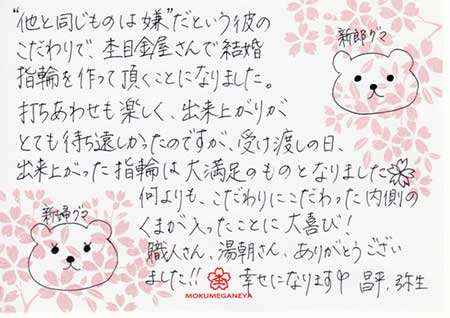 “他と同じものは嫌”だという彼の
こだわりで、杢目金屋さんで結婚
指輪を作って頂くことになりました。
打ちあわせも楽しく、出来上がりが
とても待ち遠しかったのですが、受け渡しの日、
出来上がった指輪は大満足のものとなりました
何よりも、こだわりにこだわった内側の
くまが入ったことに大喜び！
職人さん、湯朝さん、ありがとうござい
ました!! 幸せになります♡ 昌平、弥生
新郎グマ
新婦グマ
MOKUMEGANEYA